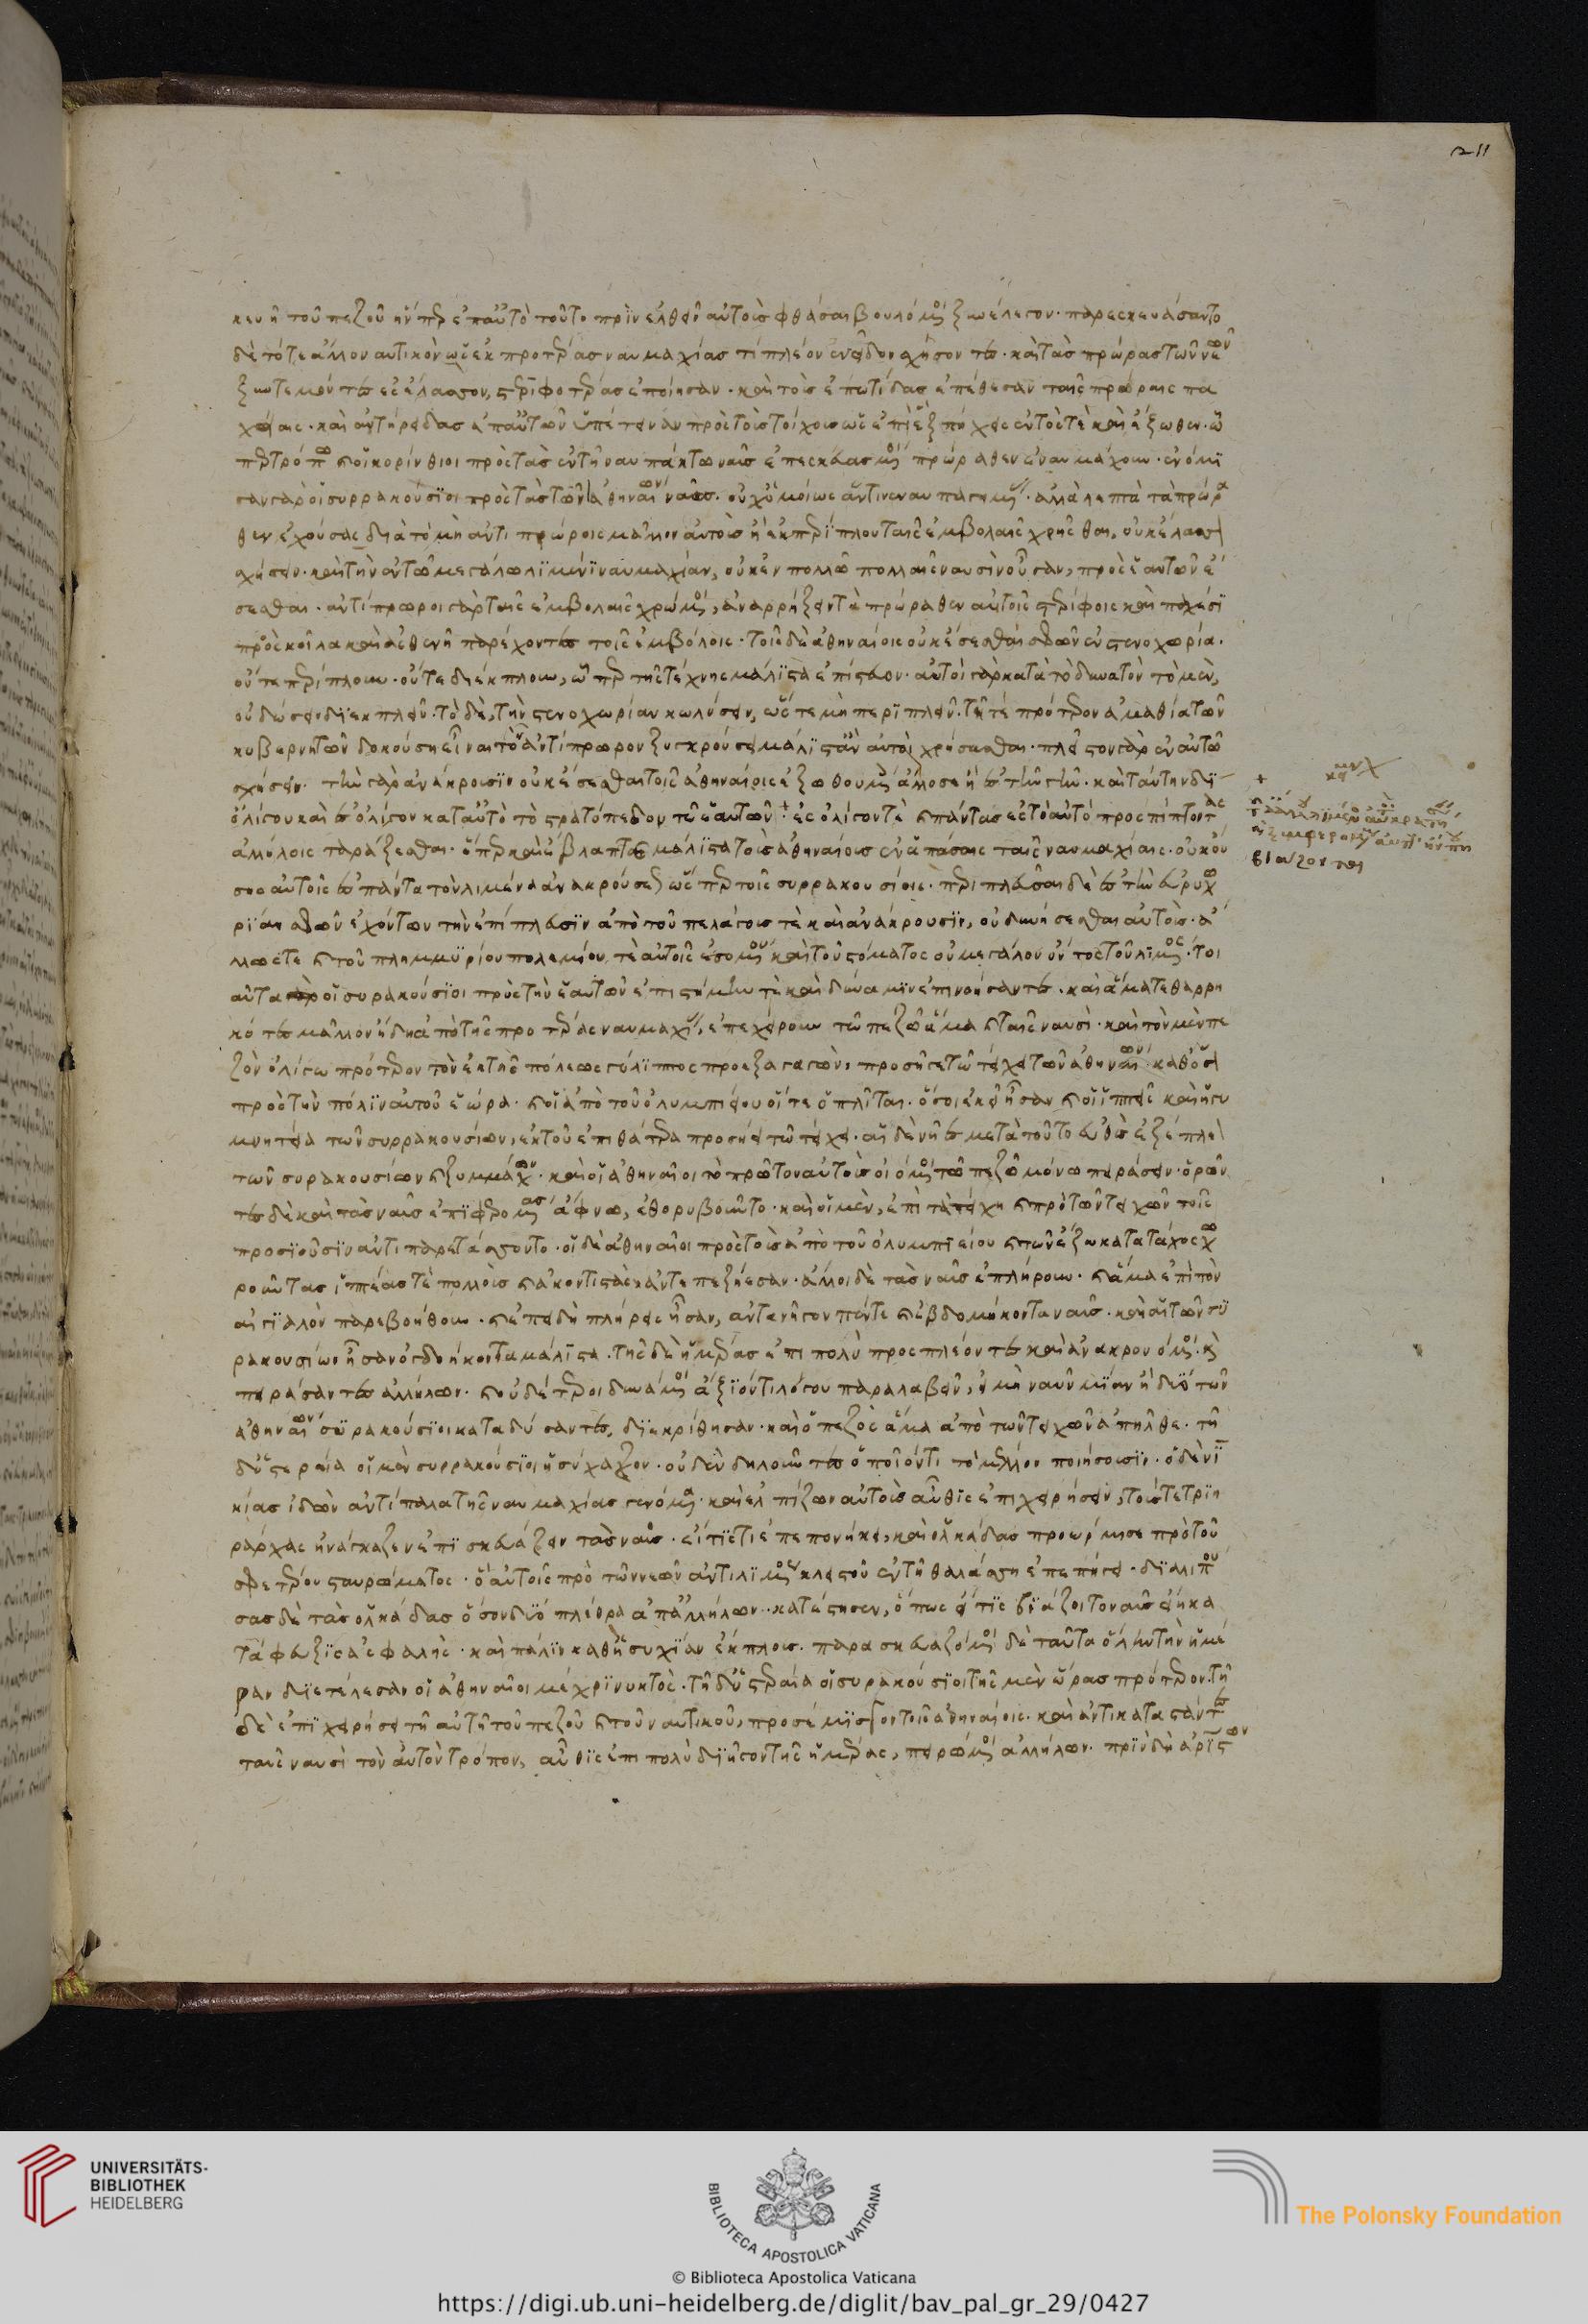 211
κευῆ τοῦ πεζοῦ ἥνπερ ἐπ' αὐτὸ τοῦτο πρὶν ἐλθεῖν αὐτοὺς φθάσαι βουλόμενοι ξυνέλεγον. παρεσκευάσαντο
δὲ τό τε ἄλλον αυτικὸν ὡς ἐκ προτέρας ναυμαχίας τί πλέον ἐνεῖδον σχῆσον τες. καὶ τὰς πρώρας τῶν νεῶν
ξυντεμόντες ἐς ἔλασσον, στεριφοτέρας ἐποίησαν. καὶ τὰς ἐπωτίδας ἐπέθεσαν ταῖς πρώραις πα
χείαις. καὶ ἀντήριδας ἀπ' αὐτῶν ὑπέτειναν πρὸς τοὺς τοίχους ὡς ἐπὶ ἓξ πήχεις ἐντός τε καὶ ἔξωθεν. ὧ
περ τρόπω καὶ οἱ κορίνθιοι πρὸς τὰς ἐν τῆ ναυπάκτω ναῦς ἐπεσκευασμένοι πρώραθεν ἐναυμάχουν. ἐνόμι
σαν γὰρ οἱ συρρακούσιοι πρὸς τὰς τῶν ἀθηναίων ναῦς. οὐχ ὁμοίως ἀντινεναυπηγημένας. ἀλλὰ λεπτὰ τὰ πρώρα
θεν ἐχούσας διὰ τὸ μὴ ἀντιπρώροις μᾶλλον αὐτοὺς ἢ ἐκ περίπλου ταῖς ἐμβολαῖς χρῆσθαι, οὐκ ἔλασσον
σχήσειν. καὶ τὴν ἐν τῶ μεγάλω λιμένι ναυμαχίαν, οὐκ ἐν πολλῶ πολλαῖς ναυσὶν οὖσαν, πρὸς ἑαυτῶν ἔ
σεσθαι. ἀντίπρωροι γὰρ ταῖς ἐμβολαῖς χρώμενοι, ἀναρρήξειν τὰ πρώραθεν αὐτοῖς στερίφοις καὶ παχέσι
πρὸς κοῖλα καὶ ἀσθενῆ παρέχοντες τοῖς ἐμβόλοις. τοῖς δὲ ἀθηναίοις οὐκ ἔσεσθαι σφῶν ἐν στενοχωρία.
οὔτε περίπλουν. οὔτε διέκπλουν, ὧπερ τῆς τέχνης μάλιστα ἐπίστευον. αὐτοὶ γὰρ κατὰ τὸ δυνατὸν τὸ μὲν,
οὐ δώσειν διεκπλεῖν. τὸ δὲ, τὴν στενοχωρίαν κωλύσειν, ὥστε μὴ περιπλεῖν. τῆ τε πρότερον ἀμαθία τῶν
κυβερνητῶν δοκούση εἶναι τὸ ἀντίπρωρον ξυγκροῦσαι μάλιστ' ἂν αὐτοὶ χρήσασθαι. πλεῖστον γὰρ ἐν αὐτῶ
σχήσειν. τὴν γὰρ ἀνάκρουσιν οὐκ ἔσεσθαι τοῖς ἀθηναίοις ἐξωθουμένοις ἄλλοσε ἢ ἐς τὴν γῆν. καὶ ταύτην δι'
ὀλίγου καὶ ἐς ὀλίγον κατ' αὐτὸ τὸ στρατόπεδον τὸ ἑαυτῶν + ἐς ὀλίγον τὲ καὶ πάντας ἐς τὸ αὐτό προσπίπτοντας
ἀλλήλοις ταράξεσθαι. ὅπερ καὶ ἔβλαπτε μάλιστα τοὺς ἀθηναίους ἐν ἁπάσαις ταῖς ναυμαχίαις. οὐκ οὔ
σης αὐτοῖς ἐς πάντα τὸν λιμένα ἀνακρούσεως ὥσπερ τοῖς συρρακουσίοις. περιπλεῦσαι δὲ ἐς τὴν εὐρυχω
ρίαν σφῶν ἐχόντων τὴν ἐπίπλευσιν ἀπὸ τοῦ πελάγους τὲ καὶ ἀνάκρουσιν, οὐ δυνήσεσθαι αὐτοὺς. ἄ
λλως τε καὶ τοῦ πλημμυρίου πολεμίου τὲ αὐτοῖς ἐσομένου καὶ τοῦ στόματος οὐ μεγάλου ὄντος τοῦ λιμένος. τοι
αῦτα οἱ συρακούσιοι πρὸς τὴν ἑαυτῶν ἐπιστήμην τὲ καὶ δύναμιν ἐπινοήσαντες. καὶ ἅμα τεθαρρη
κότες μᾶλλον ἤδη ἀπὸ τῆς προτέρας ναυμαχίας, ἐπεχείρουν τῶ πεζῶ ἅμα καὶ ταῖς ναυσὶ. καὶ τὸν μὲν πε
ζὸν ὀλίγω πρότερον τὸν ἐκ τῆς πόλεως γύλιππος προεξαγαγὼν, προσῆγε τῶ τείχει τῶν ἀθηναίων. καθ' ὅσον
πρὸς τὴν πόλιν αὐτοῦ ἑώρα. καὶ οἱ ἀπὸ τοῦ ὀλυμπιείου οἵ τε ὁπλῖται. ὅσοι ἐκεῖ ἦσαν καὶ οἱ ἱππεῖς καὶ ἡ γυ
μνητεία τῶν συρρακουσίων, ἐκ τοῦ ἐπὶ θάτερα προσήει τῶ τείχει. αἱ δὲ νῆες μετὰ τοῦτο εὐθὺς ἐξέπλεον
τῶν συρακουσίων καὶ ξυμμάχων. καὶ οἱ ἀθηναῖοι τὸ πρῶτον αὐτοὺς οἰόμενοι τῶ πεζῶ μόνω πειράσειν. ὁρῶν
τες δὲ καὶ τὰς ναῦς ἐπιφερομένας ἄφνω, ἐθορυβοῦντο. καὶ οἱ μὲν, ἐπὶ τὰ τείχη καὶ πρὸ τῶν τειχῶν τοῖς
προσιοῦσιν ἀντιπαρετάσσοντο. οἱ δὲ ἀθηναῖοι πρὸς τοὺς ἀπὸ τοῦ ὀλυμπιείου καὶ τῶν ἔξω κατὰ τάχος χω
ροῦντας ἱππέας τὲ πολλοὺς καὶ ἀκοντιστὰς ἀντεπεξῄεσαν. ἄλλοι δὲ τὰς ναῦς ἐπλήρουν. καὶ ἅμα ἐπὶ τὸν
αἰγιαλὸν παρεβοήθουν. καὶ ἐπειδὴ πλήρεις ἦσαν, ἀντανῆγον πέντε καὶ ἑβδομήκοντα ναῦς. καὶ αἱ τῶν συ
ρακουσίων ἦσαν ὀγδοήκοντα μάλιστα. τῆς δὲ ἡμέρας ἐπὶ πολὺ προσπλέοντες καὶ ἀνακρουόμενοι. καὶ
πειράσαντες ἀλλήλων. καὶ οὐδέτεροι δυνάμενοι ἄξιόν τι λόγου παραλαβεῖν, εἰ μὴ ναῦν μίαν ἢ δύο τῶν
ἀθηναίων συρακούσιοι καταδύσαντες, διεκρίθησαν. καὶ ὁ πεζὸς ἅμα ἀπὸ τῶν τειχῶν ἀπῆλθε. τῆ
δ' ὑστεραία οἱ μὲν συρρακούσιοι ἡσύχαζον. οὐδὲν δηλοῦντες ὁποῖόν τι τὸ μέλλον ποιήσουσιν. ὁ δὲ νι
κίας ἰδὼν ἀντίπαλα τῆς ναυμαχίας γενόμενα. καὶ ἐλπίζων αὐτοὺς αὖθις ἐπιχειρήσειν, τούς τε τριη
ράρχας ἠνάγκαζεν ἐπισκευάζειν τὰς ναῦς. εἴ τίς τι ἐπεπονήκει, καὶ ὁλκάδας προώρμισε πρὸ τοῦ
σφετέρου σταυρώματος. ὃ αὐτοῖς πρὸ τῶν νεῶν ἀντὶ λιμένος κλειστοῦ ἐν τῆ θαλάσση ἐπεπήγει. διαλιπού
σας δὲ τὰς ὁλκάδας ὅσον δύο πλέθρα ἀπ' ἀλλήλων. κατέστησεν, ὅπως εἴ τις βιάζοιτο ναῦς εἴη κα
τάφευξις ἀσφαλὴς. καὶ πάλιν καθ' ἡσυχίαν ἔκπλους. παρασκευαζόμενοι δὲ ταῦτα ὅλην τὴν ἡμέ
ραν διετέλεσαν οἱ ἀθηναῖοι μέχρι νυκτὸς. τῆ δ' ὑστεραία οἱ συρακούσιοι τῆς μὲν ὥρας πρότερον. τῆ
δὲ ἐπιχειρήσει τῆ αὐτῆ τοῦ πεζοῦ καὶ τοῦ ναυτικοῦ, προσέμισγον τοῖς ἀθηναίοις. καὶ ἀντικαταστάντες
ταῖς ναυσὶ τὸν αὐτὸν τρόπον, αὖθις ἐπὶ πολὺ διῆγον τῆς ἡμέρας, πειρώμενοι ἀλλήλων. πρὶν δὴ ἀρίστων
βιάζονται
UNIVERSITÄTS-
BIBLIOTHEK
HEIDELBERG
BIBLIOTECA APOSTOLICA VATICANA
The Polonsky Foundation
© Biblioteca Apostolica Vaticana
https://digi.ub.uni-heidelberg.de/diglit/bav_pal_gr_29/0427